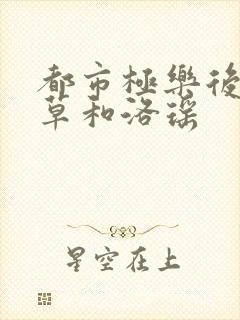 都市極樂後
草和洛瑶
星空在上